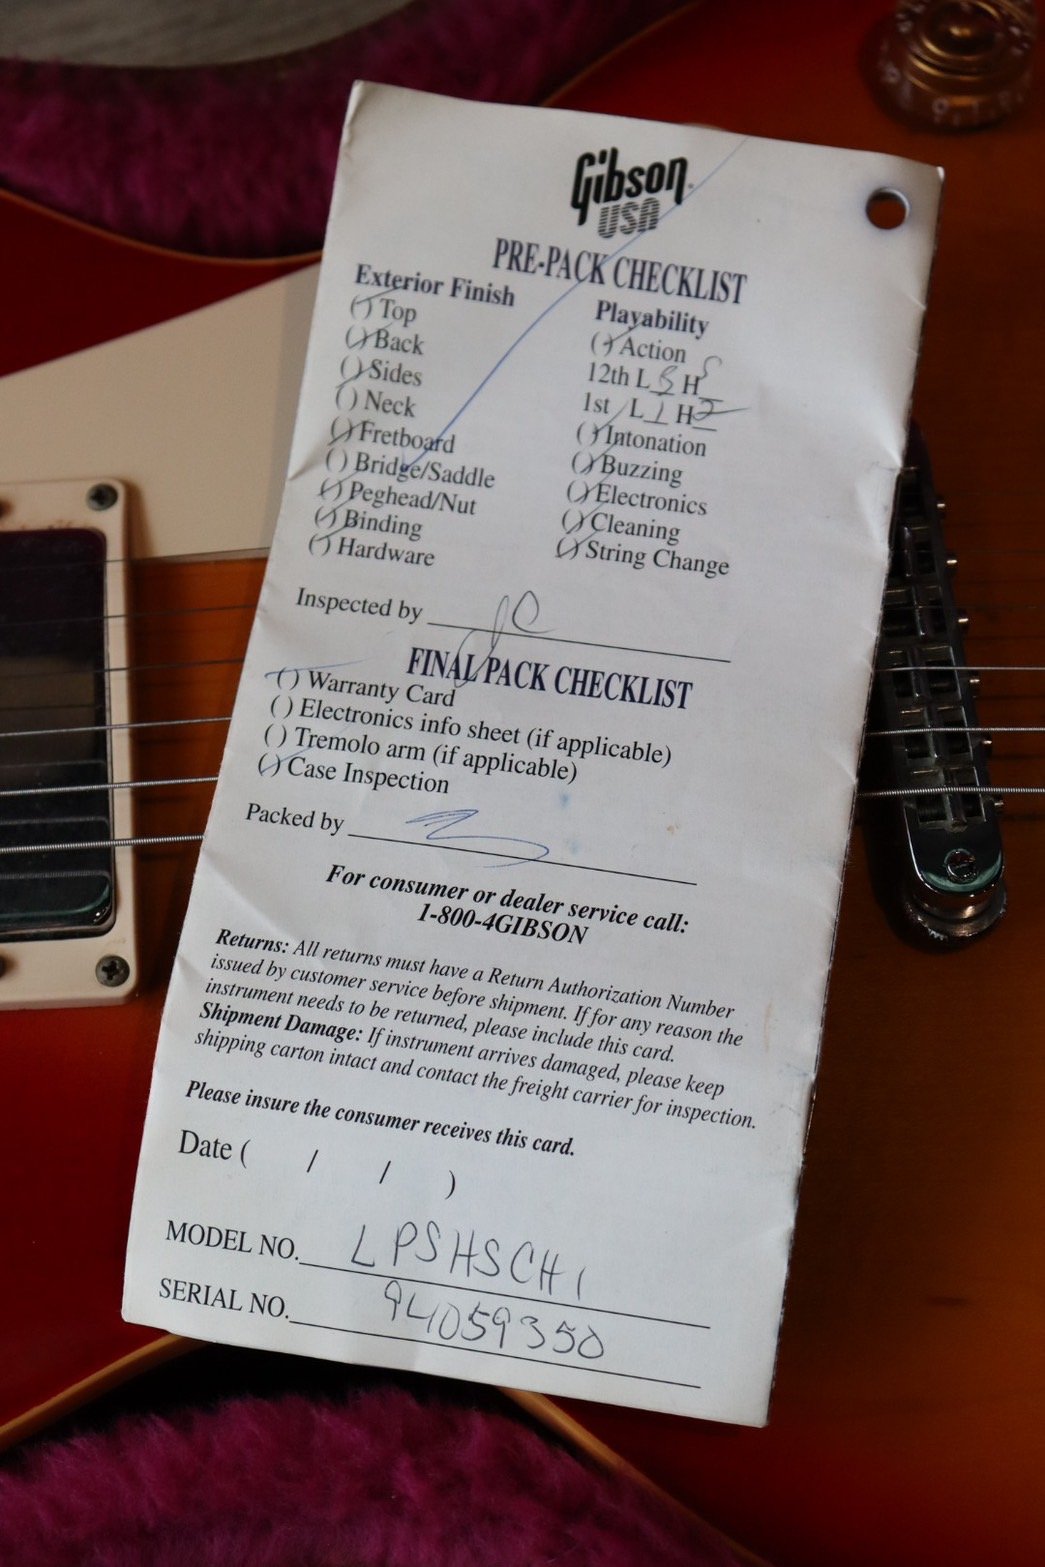 Gibson
USA
PRE-PACK CHECKLIST
Exterior Finish
( ) Top
( ) Back
( ) Sides
( ) Neck
( ) Fretboard
( ) Bridge/Saddle
( ) Peghead/Nut
( ) Binding
( ) Hardware
Playability
( ) Action
12th L 3 H 5
1st L 1 H 2
( ) Intonation
( ) Buzzing
( ) Electronics
( ) Cleaning
( ) String Change
Inspected by
FINAL PACK CHECKLIST
( ) Warranty Card
( ) Electronics info sheet (if applicable)
( ) Tremolo arm (if applicable)
( ) Case Inspection
Packed by
For consumer or dealer service call:
1-800-4GIBSON
Returns: All returns must have a Return Authorization Number
issued by customer service before shipment. If for any reason the
instrument needs to be returned, please include this card.
Shipment Damage: If instrument arrives damaged, please keep
shipping carton intact and contact the freight carrier for inspection.
Please insure the consumer receives this card.
Date ( / / )
MODEL NO. LPSHSCH1
SERIAL NO. 94059350